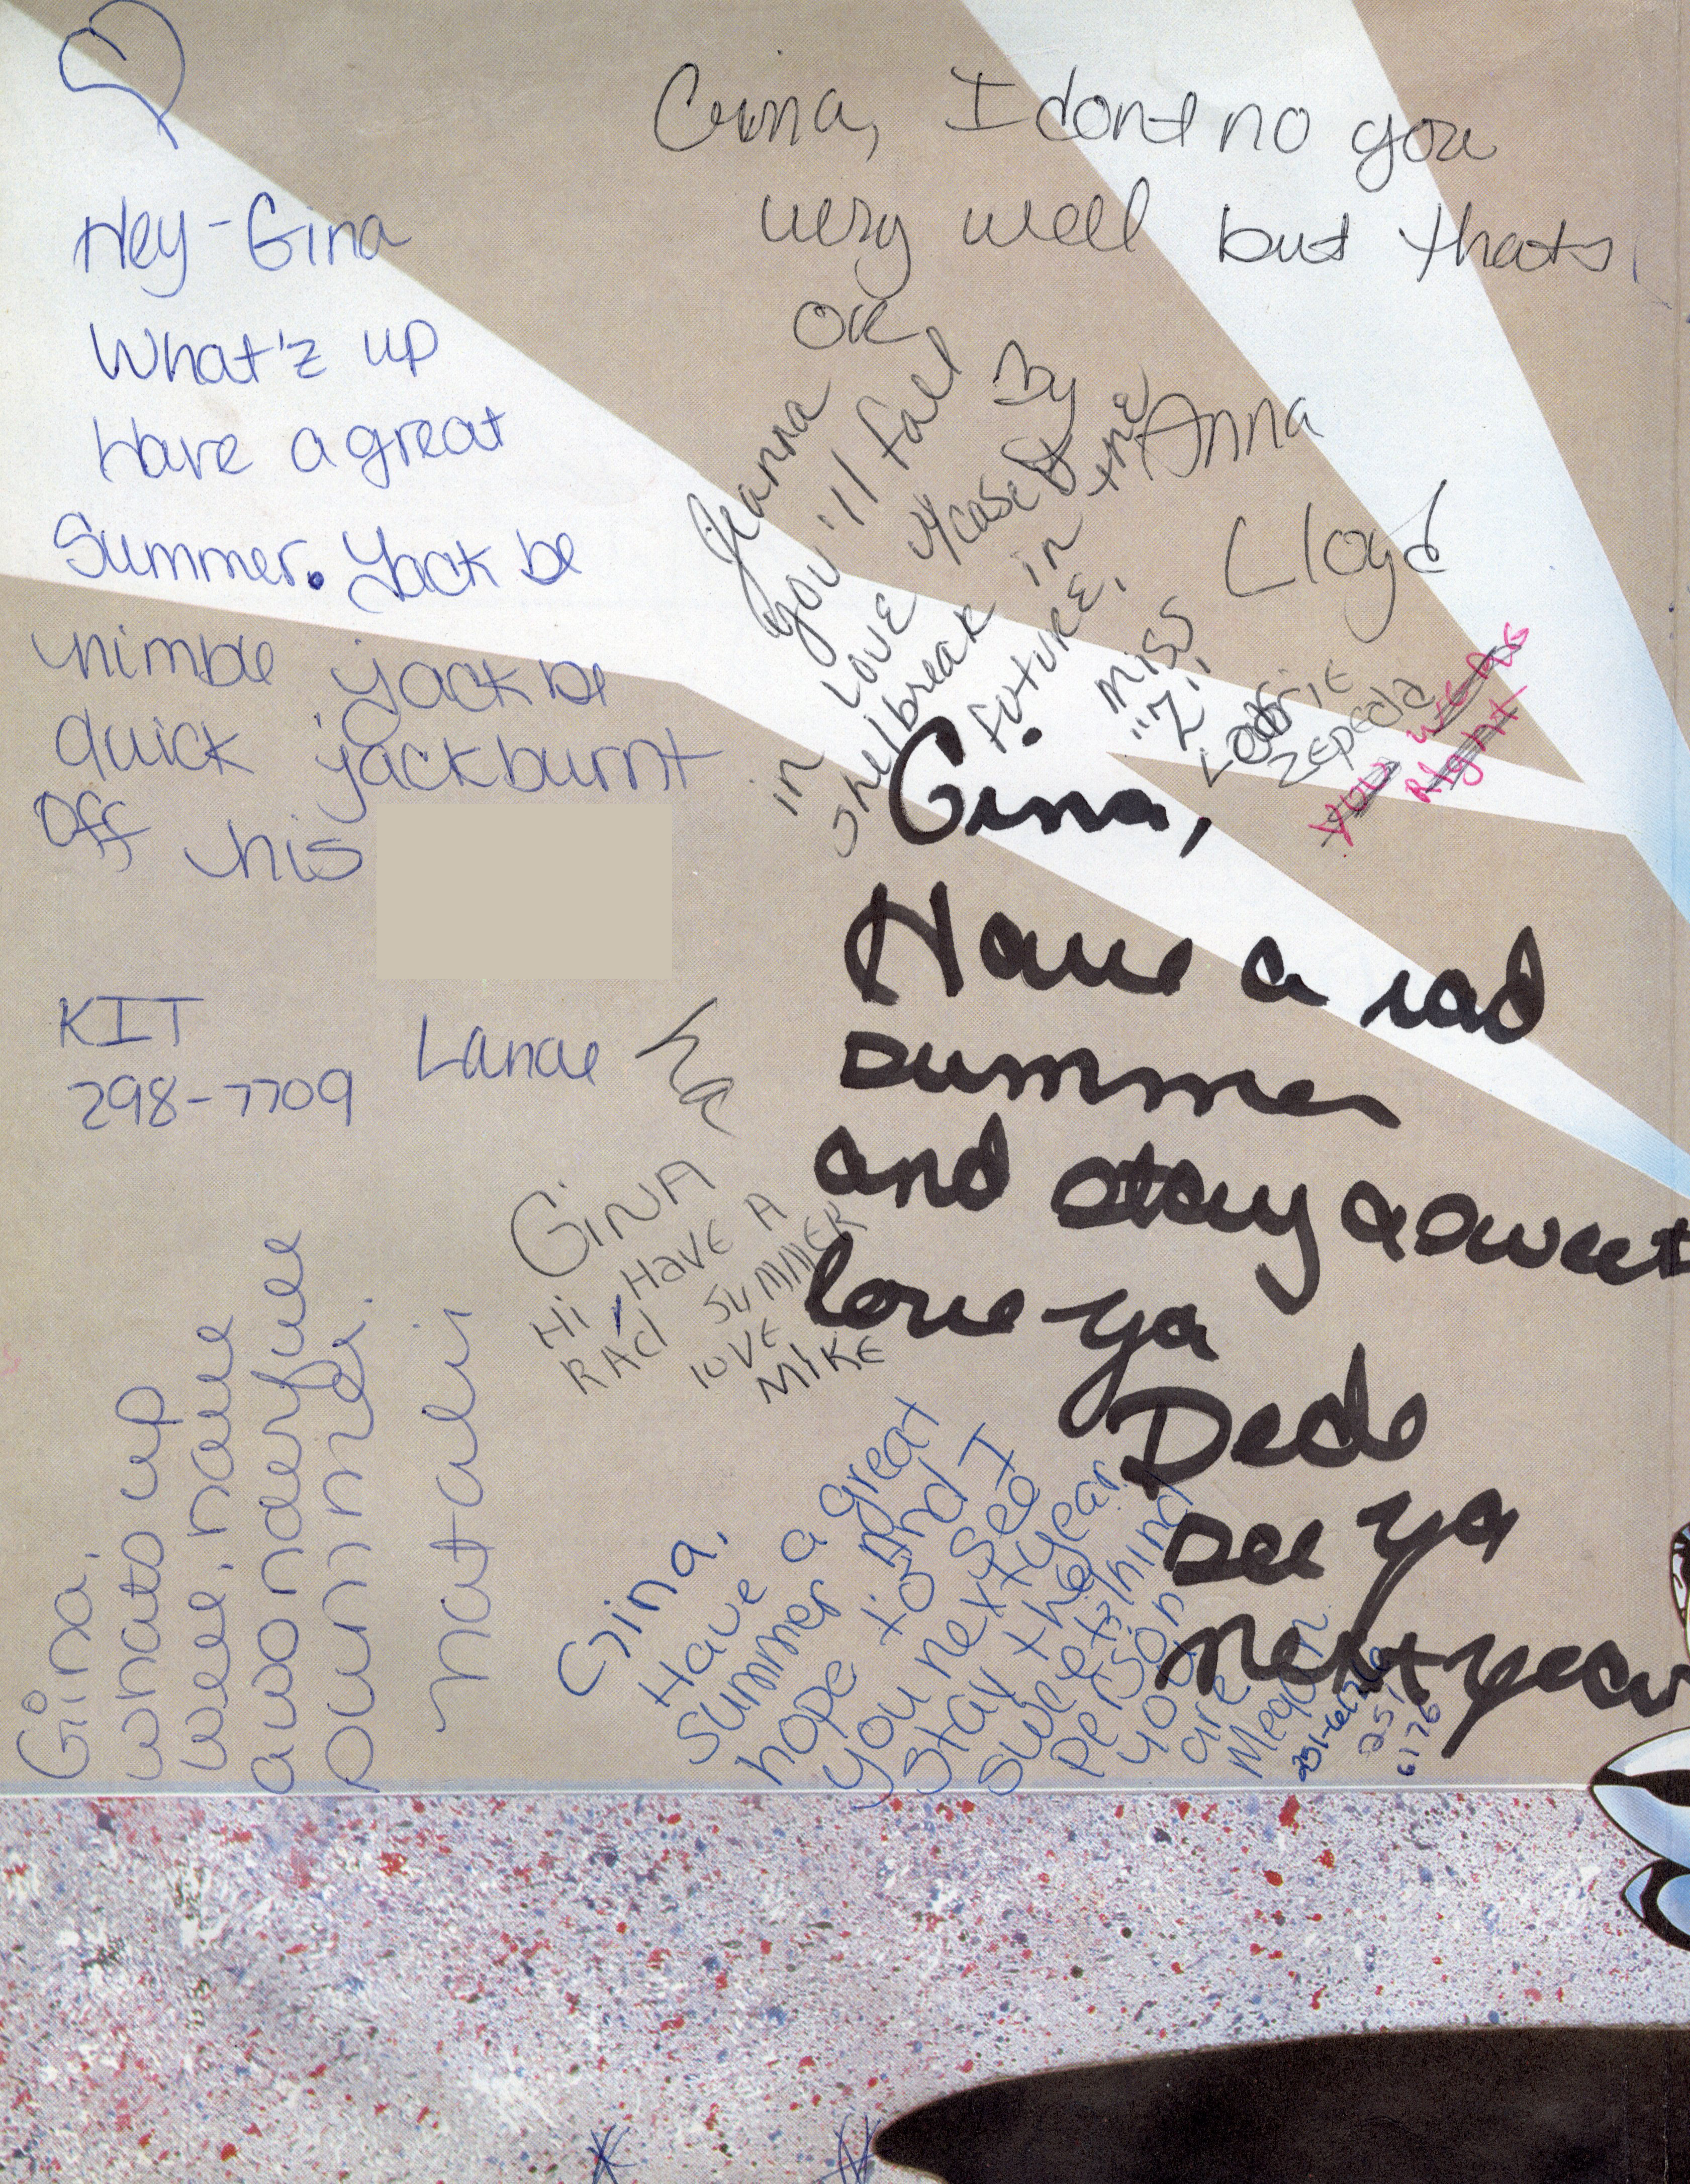 Hey-Gina
What'z up
Have a great
Summer. Jack be
nimble jack be
quick jack burnt
off his
KIT
298-7709
Lance
Gina, I dont no you
very well but thats
OK
By
Anna
Lloyd
Jeanna
you'll fall
in love
in the
future.
Miss
"Z"
Zepeda
you were
Right
Gina,
Have a rad
summer
and stay a sweet
love ya
Dede
see ya
next year
GiNA
Hi, HAVE A
RAd SUMMER
lOVE
MiKE
Gina,
whats up
well, have
a wonderful
summer.
natali
Gina,
Have a great
summer And I
hope to see
you next year.
Stay the
sweet
person
you
are
Megan
251
6176